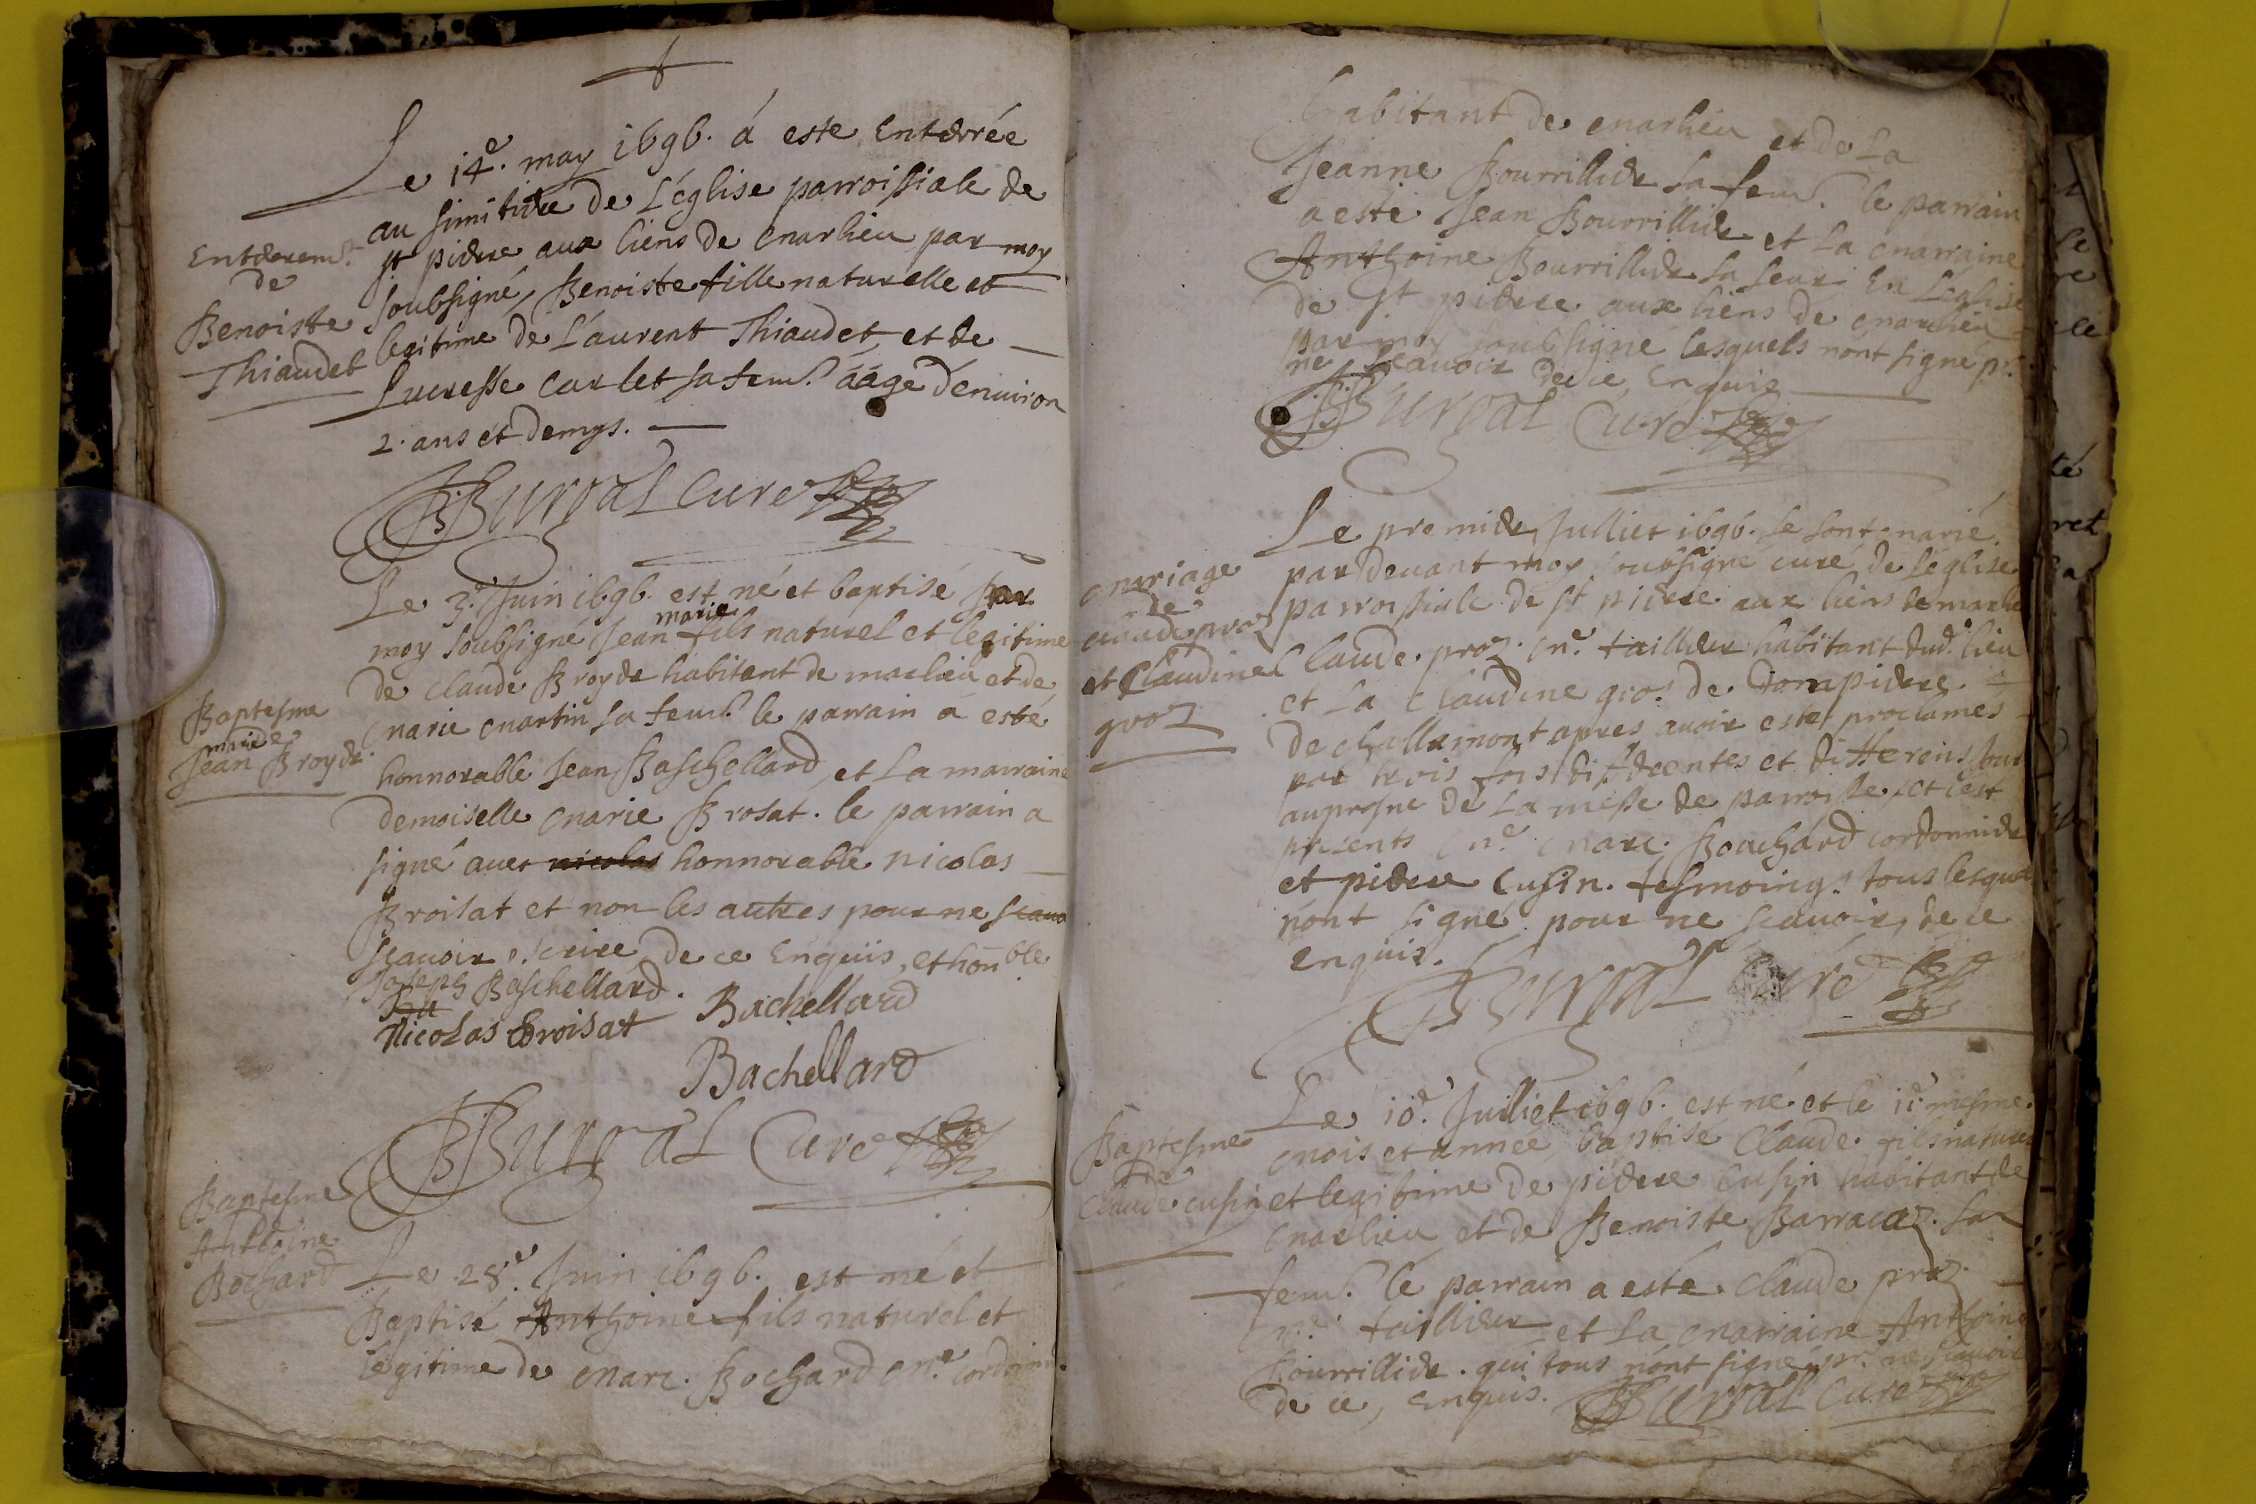 Le 14e. may 1696. á esté Enterrée
au simitiere de L'église parroissiale de
st pierre aux liens de marlieu par moy
soubsigné, Benoiste fille naturelle et
legitime de Laurent Thiaudet, et de
Lucresse Carlet sa fem.e áágé d'enuiron
2. ans et demys.
Enterem.t
de
Benoiste
Thiaudet
BBurgal Curé
Le 3.e Juin 1696. est né et baptisé par
marie
moy soubsigné Jean fils naturel et legitime
de Claude Broyer habitent de marlieu et de
marie martin sa fem.e le parrain á esté
honnorable Jean Baschellard, et La marraine
demoiselle marie Brosat. le parrain a
signé auec nicolas honnorable nicolas
Broisat et non les autres pour ne scauo
scauoir escrire de ce Enquis, et honble
Joseph Baschellard.
Nicolas Broisat
Bachellard
Bachellard
Baptesme
de
marie
Jean Broyer.
BBurgal Curé
Baptesme
Anthoine
Bochard
Le 28e. Juin 1696. est né et
Baptisé Anthoine fils naturel et
legitime de marc. Bochard me. cordonn.
habitant de marlieu et de La
Jeanne Bourrillier sa fem.e le parrain
a esté Jean Bourrillier et La marraine
Anthoine Bourrillier sa seur En L'église
de st pierre aux liens de marlieu
par moy soubsigné lesquels nont signé pr.
ne scauoir de ce Enquis
BBurgal Curé
Le premier Julliet 1696. se sont marié
par deuant moy soubsigné curé de L'église
parroissiale de st pierre aux liens de marlie
Claude. proz. me. tailleur habitant dud. lieu
et La Claudine gros de Dompierre
de challamont apres auoir estes proclames
par trois fois differentes et differens jour
au prosne de La messe de parroisse et cest
presents me marc. Bouchard cordonnier
et pierre Cusin. tesmoings tous lesquel
nont signé pour ne scauoir, de ce
enquis.
mariage
de
claude proz
et Claudine
groz
BBurgal Curé
Le 10e. Julliet 1696. est né et le 11e mesme
mois et année baptisé Claude fils naturel
et legitime de pierre Cusin habitant de
marlieu et de Benoiste Barraca. sa
fem.e le parrain a esté Claude proz
me. taillieur et La marraine Anthoine
Bourrillier. qui tous nont signé pr. ne scauoir
de ce, enquis. BBurgal Curé
Baptesme
de
Claude cusin